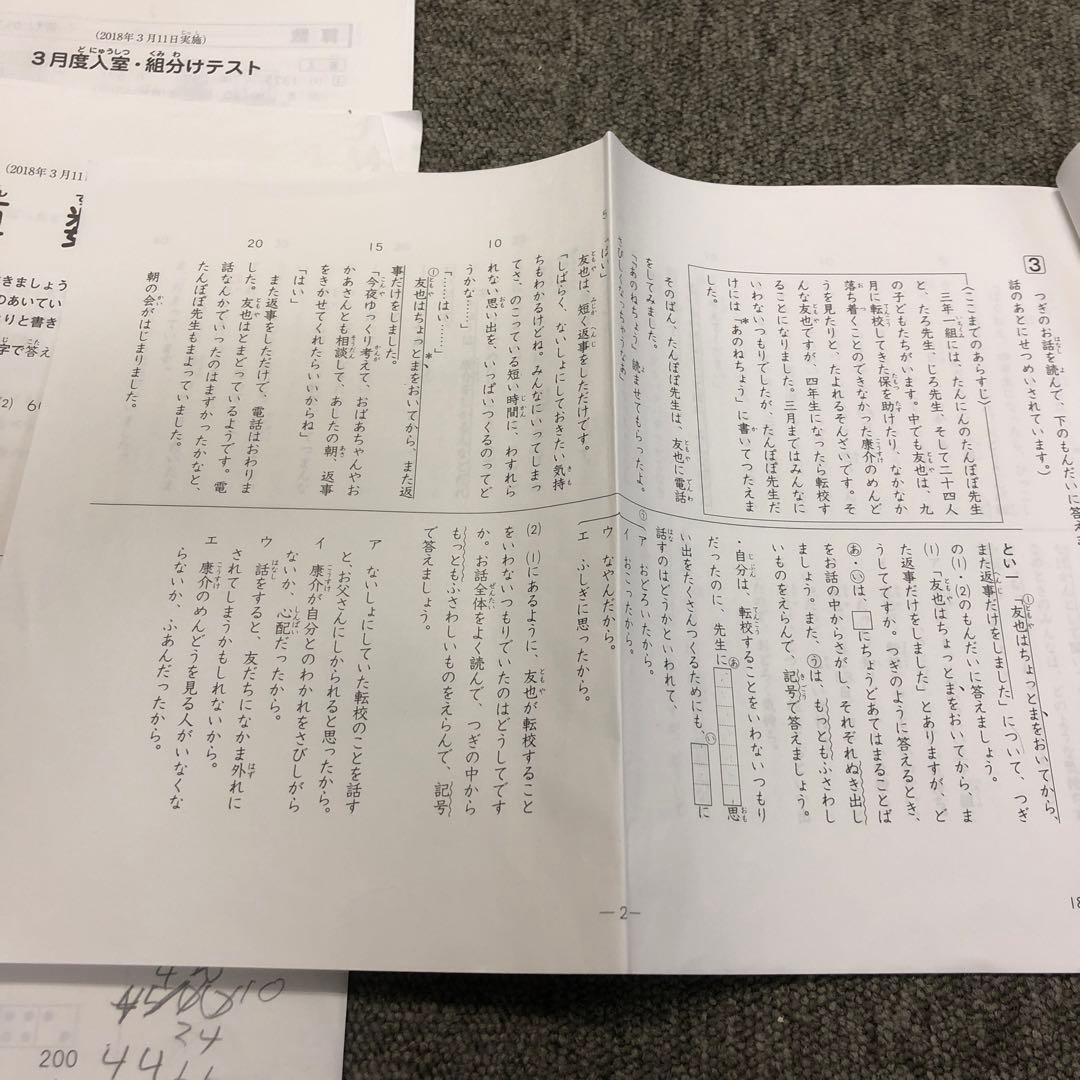 (2018年3月11日実施)
3月度入室・組分けテスト
(2018年3月11
きましょう
のあいてい
りと書き
字で答え
(2) 6
3
つぎのお話を読んで、下のもんだいに答え
話のあとにせつめいされています。)
(ここまでのあらすじ)
三年一組には、たんにんのたんぽぽ先生
と、たろ先生、じろ先生、そして二十四人
の子どもたちがいます。中でも友也は、九
月に転校してきた保を助けたり、なかなか
落ち着くことのできなかった康介のめんど
うを見たりと、たよれるそんざいです。そ
んな友也ですが、四年生になったら転校す
ることになりました。三月まではみんなに
いわないつもりでしたが、たんぽぽ先生だ
けには「*あのねちょう」に書いてつたえま
した。
そのばん、たんぽぽ先生は、友也に電話
をしてみました。
「あのねちょう、読ませてもらったよ。
さびしくなっちゃうなあ」
「はい」
5
友也は、短く返事をしただけです。
「しばらく、ないしょにしておきたい気持
ちもわかるけどね。みんなにいってしまっ
てさ、のこっている短い時間に、わすれら
10
れない思い出を、いっぱいつくるのってど
うかな……」
「……はい……」
①友也はちょっとまをおいてから、また返
事だけをしました。
15
「今夜ゆっくり考えて、おばあちゃんやお
かあさんとも相談して、あしたの朝、返事
をきかせてくれたらいいからね」
「はい」
また返事をしただけで、電話はおわりま
20
した。友也はとまどっているようです。電
話なんかでいったのはまずかったかなと、
たんぽぽ先生もまよっていました。
朝の会がはじまりました。
とい一 「①友也はちょっとまをおいてから、
また返事だけをしました」について、つぎ
の(1)・(2)のもんだいに答えましょう。
(1) 「友也はちょっとまをおいてから、ま
た返事だけをしました」とありますが、ど
うしてですか。つぎのように答えるとき、
あ・いは、□にちょうどあてはまることば
をお話の中からさがし、それぞれぬき出し
ましょう。また、うは、もっともふさわし
いものをえらんで、記号で答えましょう。
・自分は、転校することをいわないつもり
だったのに、先生に あ 思
い出をたくさんつくるためにも、 い に
話すのはどうかといわれて、
う
ア おどろいたから。
イ おこったから。
ウ なやんだから。
エ ふしぎに思ったから。
(2) (1)にあるように、友也が転校すること
をいわないつもりでいたのはどうしてです
か。お話全体をよく読んで、つぎの中から
もっともふさわしいものをえらんで、記号
で答えましょう。
ア ないしょにしていた転校のことを話す
と、お父さんにしかられると思ったから。
イ 康介が自分とのわかれをさびしがら
ないか、心配だったから。
ウ 話をすると、友だちになかま外れに
されてしまうかもしれないから。
エ 康介のめんどうを見る人がいなくな
らないか、ふあんだったから。
—2—
18
10
24
200
44